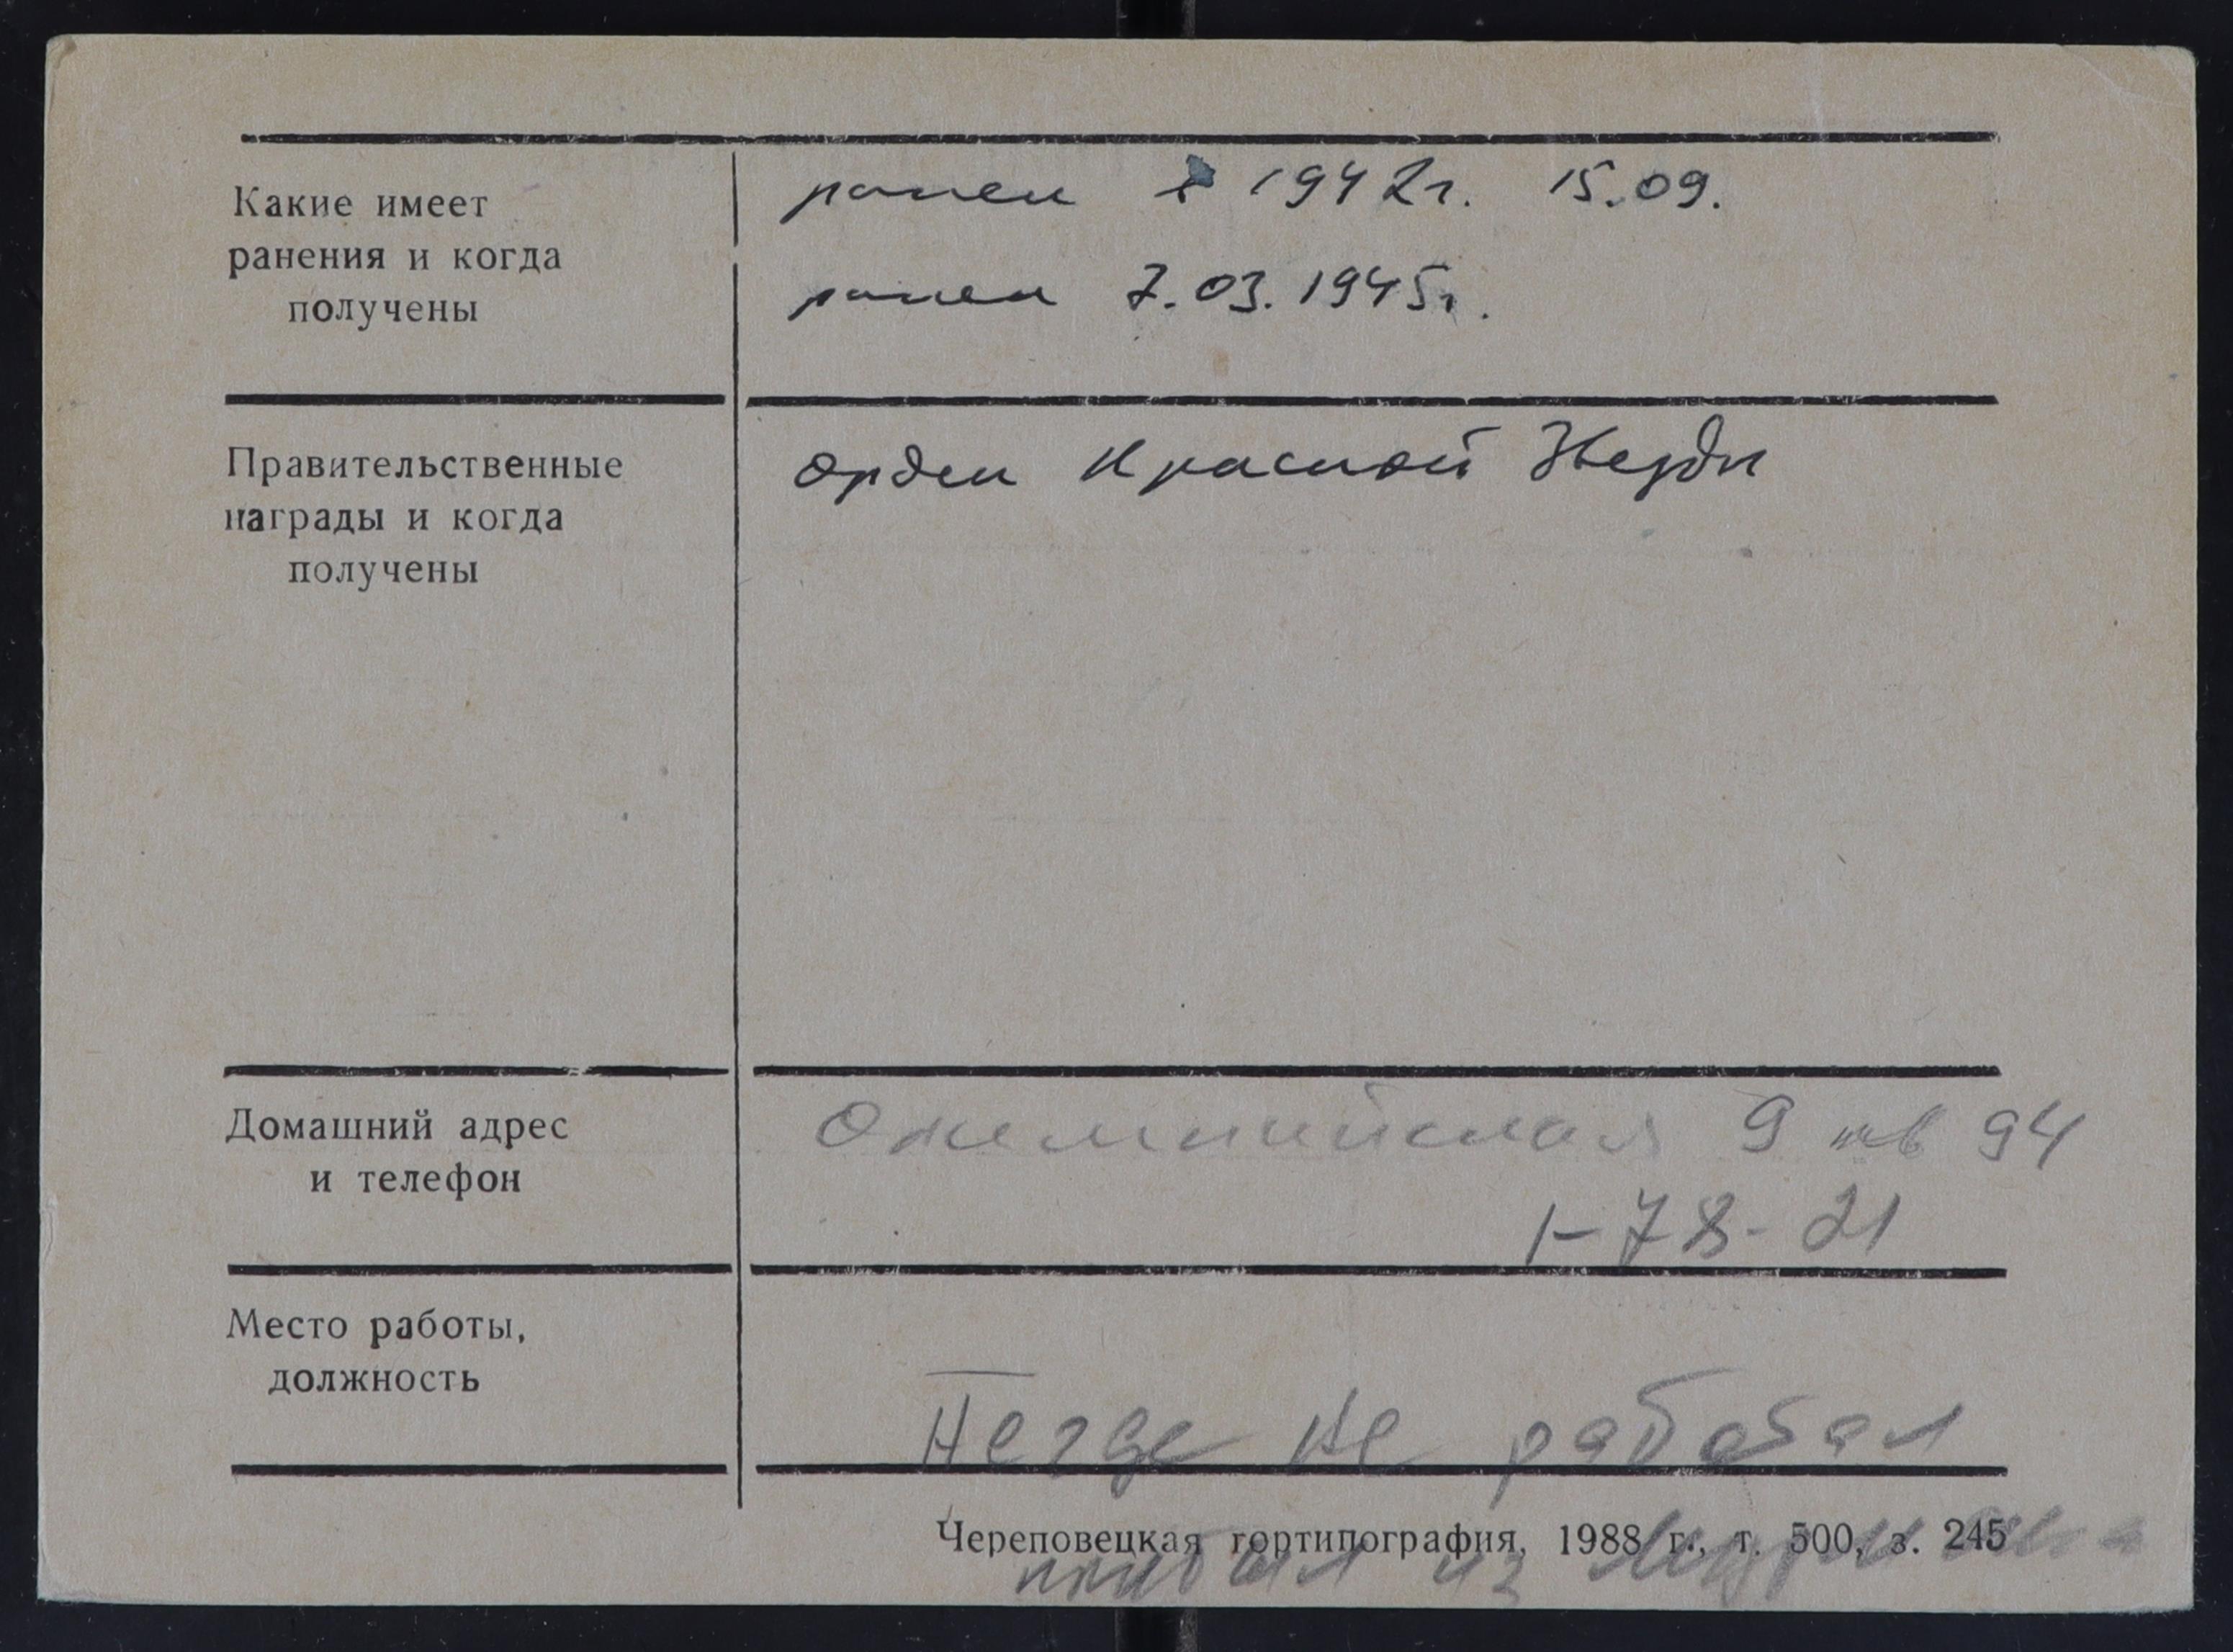 Какие имеет
ранения и когда
получены
ранен в 1942г. 15.09.
ранен 7.03.1945г.
Правительственные
награды и когда
получены
орден Красной Звезды
Домашний адрес
и телефон
Олимпийская 9 кв 94
1-78-21
Место работы,
должность
Негде не работал
Череповецкая гортипография, 1988 г., т. 500, з. 245
прибыл из